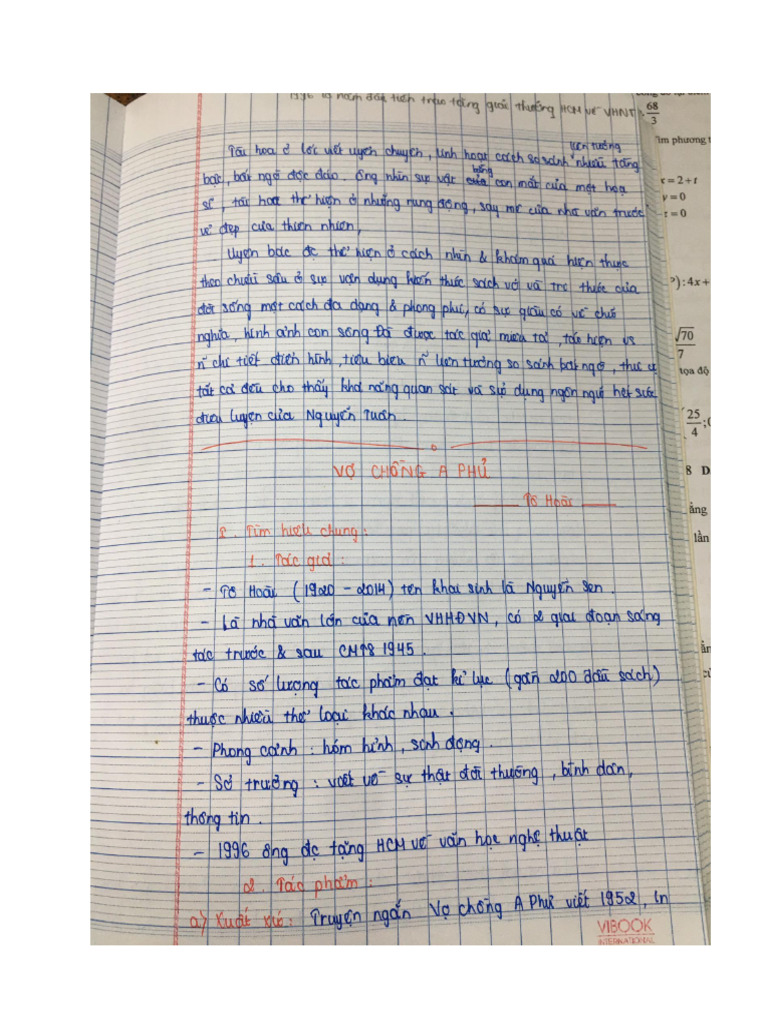 1996 là năm đầu tiên trao tặng giải thưởng HCM về VHNT
68
3
Tìm phương t
x = 2 + t
y = 0
= t = 0
liên tưởng
Tài hoa ở lối viết uyển chuyển, linh hoạt cách so sánh nhiều tầng
bậc, bất ngờ độc đáo. Ông nhìn sự vật của con mắt của một hoạ
bằng
sĩ, tài hoa thể hiện ở những rung động, say mê của nhà văn trước
vẻ đẹp của thiên nhiên,
Uyên bác đc thể hiện ở cách nhìn & khám phá hiện thực
theo chiều sâu ở sự vận dụng kiến thức sách vở và tri thức của
đời sống một cách đa dạng & phong phú, có sự giàu có về chữ
nghĩa, hình ảnh con sông Đà được tác giả miêu tả, tái hiện vs
n~ chi tiết điển hình, tiêu biểu n~ liên tưởng so sánh bất ngờ, thú vị
tất cả đều cho thấy khả năng quan sát và sử dụng ngôn ngữ hết sức
điêu luyện của Nguyễn Tuân.
) : 4x +
√70
7
tọa độ
25
4
;0
8 D
ẳng
lần
VỢ CHỒNG A PHỦ
Tô Hoài
I. Tìm hiểu chung:
1. Tác giả:
- Tô Hoài (1920 - 2014) tên khai sinh là Nguyễn Sen.
- Là nhà văn lớn của nền VHHĐVN, có 2 giai đoạn sáng
tác trước & sau CMT8 1945.
- Có số lượng tác phẩm đạt kỉ lục (gần 200 đầu sách)
thuộc nhiều thể loại khác nhau.
- Phong cảnh: hóm hỉnh, sinh động.
- Sở trường: viết về sự thật đời thường, bình dân,
thông tin.
- 1996 ông đc tặng HCM về văn học nghệ thuật
2. Tác phẩm:
a) Xuất xứ: Truyện ngắn Vợ chồng A Phủ viết 1952, in
VIBOOK
INTERNATIONAL